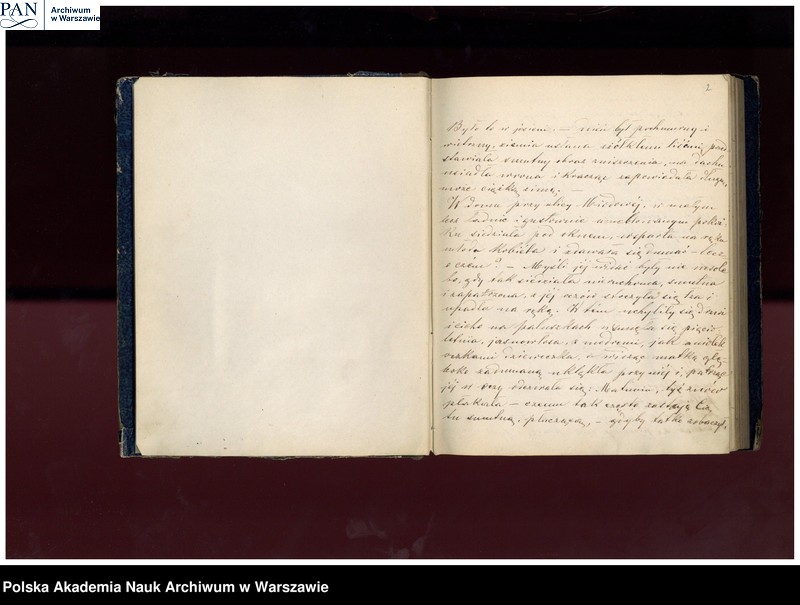 PAN
Archiwum
w Warszawie
2
Było to w jesieni. — dzień był pochmurny i
wietrzny, ziemia usłana zżółkłemi liśćmi, przed
stawiała smutny obraz zniszczenia, na dachu
usiadła wrona i kracząc zapowiadała długą,
może ciężką zimę. —
W domu przy ulicy Miodowéj, w małym
lecz ładnie i gustownie umeblowanym pokoi
ku siedziała pod oknem, wsparta na ręku
młoda kobiéta i zdawała się dumać — lecz
o czém? — Myśli jéj widać były nie wesołe
bo, gdy tak siedziała nieruchoma, smutna
i zapatrzona, z jéj oczów stoczyła się łza i
upadła na rękę. W tém uchyliły się drzwi
i cicho na paluszkach wsunęła się pięcio
letnia, jasnowłosa, z modremi, jak aniołek
oczkami dzieweczka, a widząc matkę głę
boko zadumaną uklękła przy niéj i, patrząc
jéj w oczy odezwała się: Mamuniu, tyś znowu
płakała — czemu tak często zastaję Cię
tu smutną, płaczącą, — gdyby tatko zobaczył,
Polska Akademia Nauk Archiwum w Warszawie